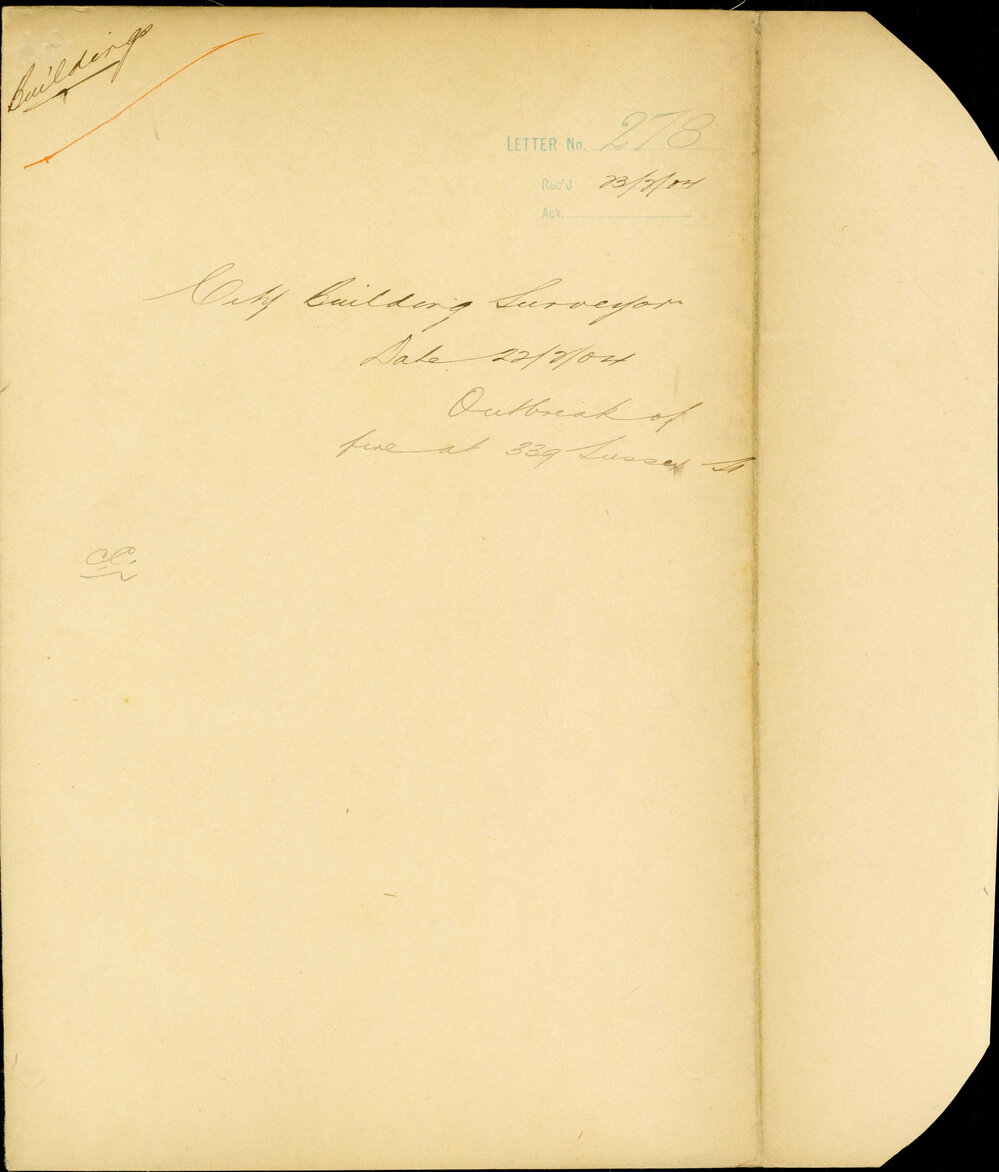 Building
LETTER No. 278
Rec'd 23/2/04
Ack.
City Building Surveyor
Date 22/2/04
Outbreak of
fire at 339 Sussex St